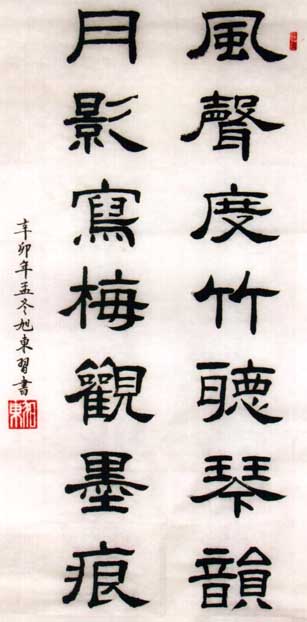 風聲度竹聽琴韻
月影寫梅觀墨痕
辛卯年孟冬旭東習書